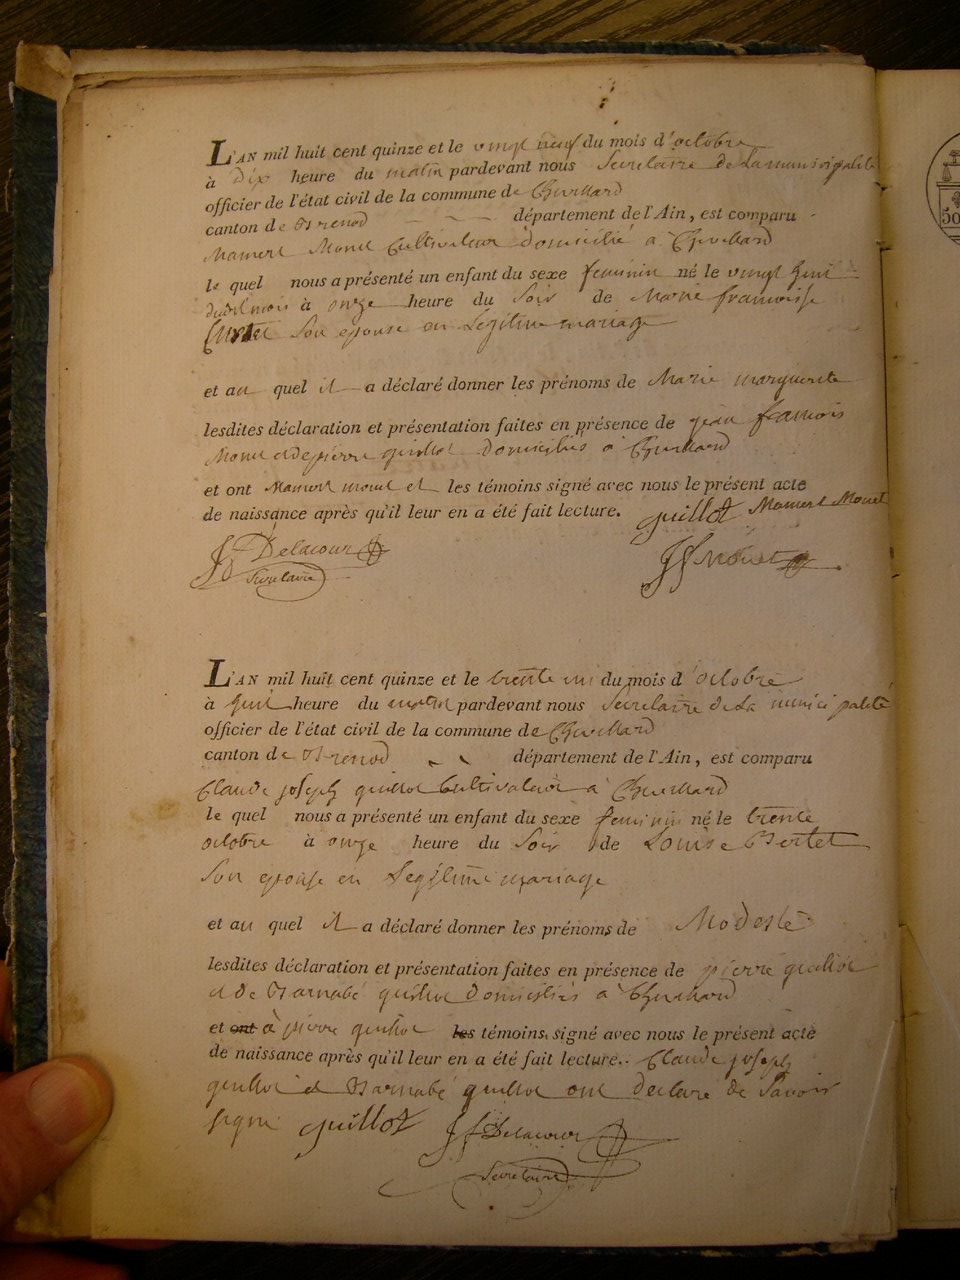 L'AN mil huit cent quinze et le vingt neuf du mois d'octobre
à Dix heure du matin pardevant nous Secretaire De La municipalité
officier de l'état civil de la commune de Chevillard
canton de Brenod département de l'Ain, est comparu
Mamert Monet Cultivateur Domicilié à Chevillard
le quel nous a présenté un enfant du sexe feminin né le vingt huit
dudit mois à onze heure du Soir de Marie françoise
Son epouse en Legitime mariage
et au quel il a déclaré donner les prénoms de Marie marguerite
lesdites déclaration et présentation faites en présence de jean francois
Monet et de pierre guillot Domiciliés à Chevillard
et ont Mamert monet et les témoins signé avec nous le présent acte
de naissance après qu'il leur en a été fait lecture. guillot Mamert Monet
Delacour JF Monet
Secretaire
L'AN mil huit cent quinze et le trente un du mois d'octobre
à huit heure du matin pardevant nous Secretaire De La municipalité
officier de l'état civil de la commune de Chevillard
canton de Brenod département de l'Ain, est comparu
Claude joseph guillot Cultivateur à Chevillard
le quel nous a présenté un enfant du sexe feminin né le trente
octobre à onze heure du Soir de Louise Bertet
Son epouse en Legitime mariage
et au quel il a déclaré donner les prénoms de Modeste
lesdites déclaration et présentation faites en présence de pierre guillot
et de Barnabé guillot Domiciliés à Chevillard
et ont à pierre guillot les témoins signé avec nous le présent acte
de naissance après qu'il leur en a été fait lecture.. Claude joseph
guillot et Barnabé guillot ont Declaré de Savoir
signe guillot Delacour
Secretaire
50